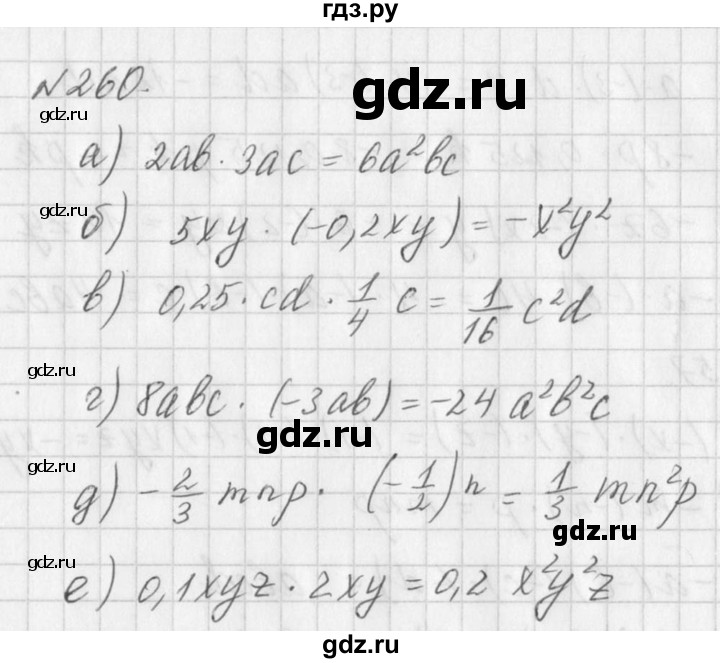 гдз.ру
№260.
gdz.ru
gdz.ru
а) 2ab · 3ac = 6a²bc
gdz.ru
б) 5xy · (-0,2xy) = -x²y²
в) 0,25 · cd · 1/4 c = 1/16 c²d
gdz.ru
г) 8abc · (-3ab) = -24 a²b²c
gdz.ru
gdz.ru
д) -2/3 mnp · (-1/2)n = 1/3 mn²p
gdz.ru
gdz.ru
е) 0,1xyz · 2xy = 0,2 x²y²z
gdz.ru